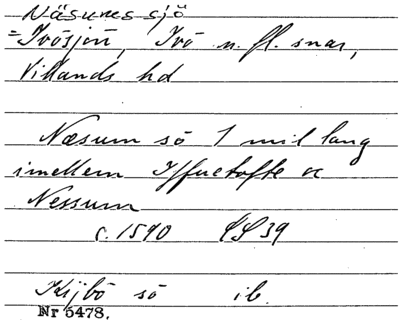 Näsums sjö
=Ivösjön, Ivö m. fl. snar,
Villands hd
Næsum sö 1 mil lang
imellem Iffuetofte oc
Nessum
c. 1590 LL 39
Kijbö sö ib.
Nr 5478.